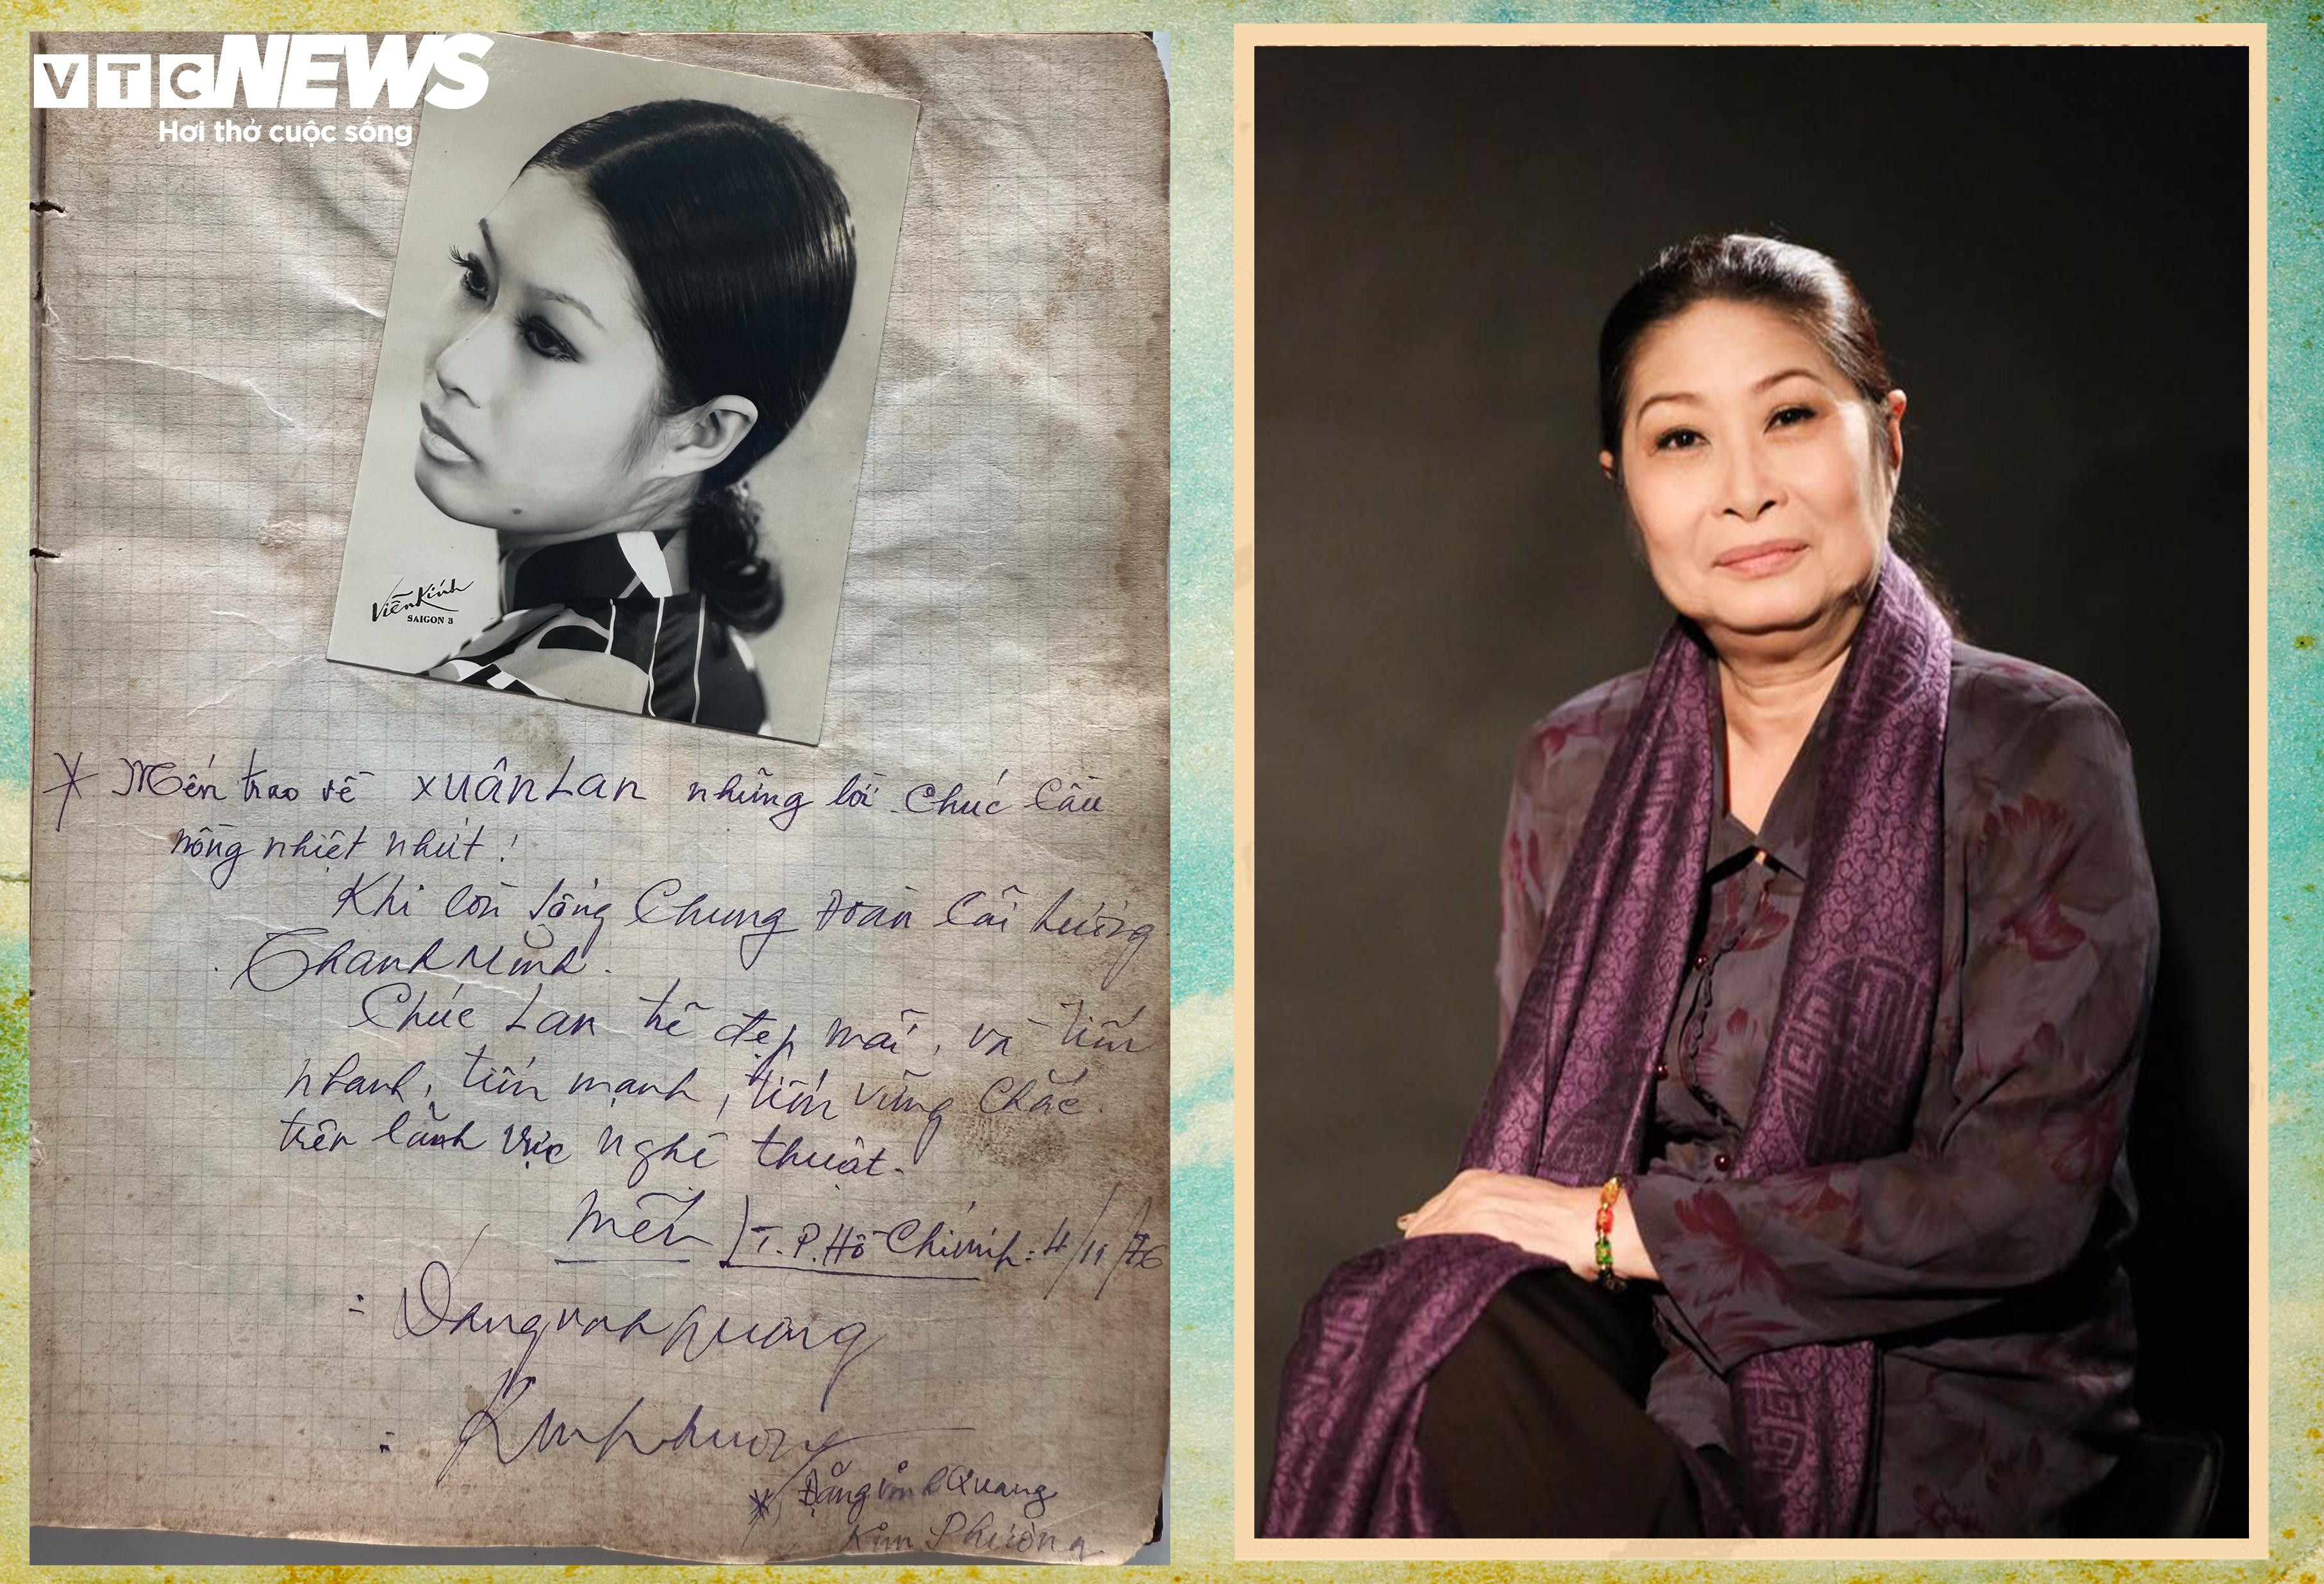 VTC NEWS
Hơi thở cuộc sống
Viễn Kính
SAIGON 3
* Mến trao về XUÂN LAN những lời chúc cầu
nồng nhiệt nhứt!
Khi còn sống chung Đoàn Cải Lương
Thanh Minh.
Chúc Lan trẻ đẹp mãi, và tiến
nhanh, tiến mạnh, tiến vững chắc
trên lãnh vực nghệ thuật.
Mến T.P. Hồ Chí Minh: 4/11/76
Đặng Vinh Quang
Kim Phương
* Đặng Vinh Quang
Kim Phượng